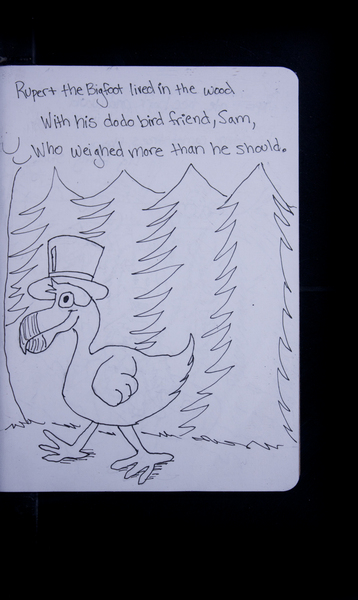 Rupert the Bigfoot lived in the wood
With his dodo bird friend, Sam,
Who weighed more than he should.